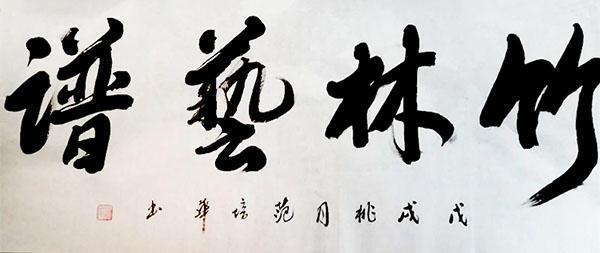 竹林藝譜
戊戌桃月范培華書